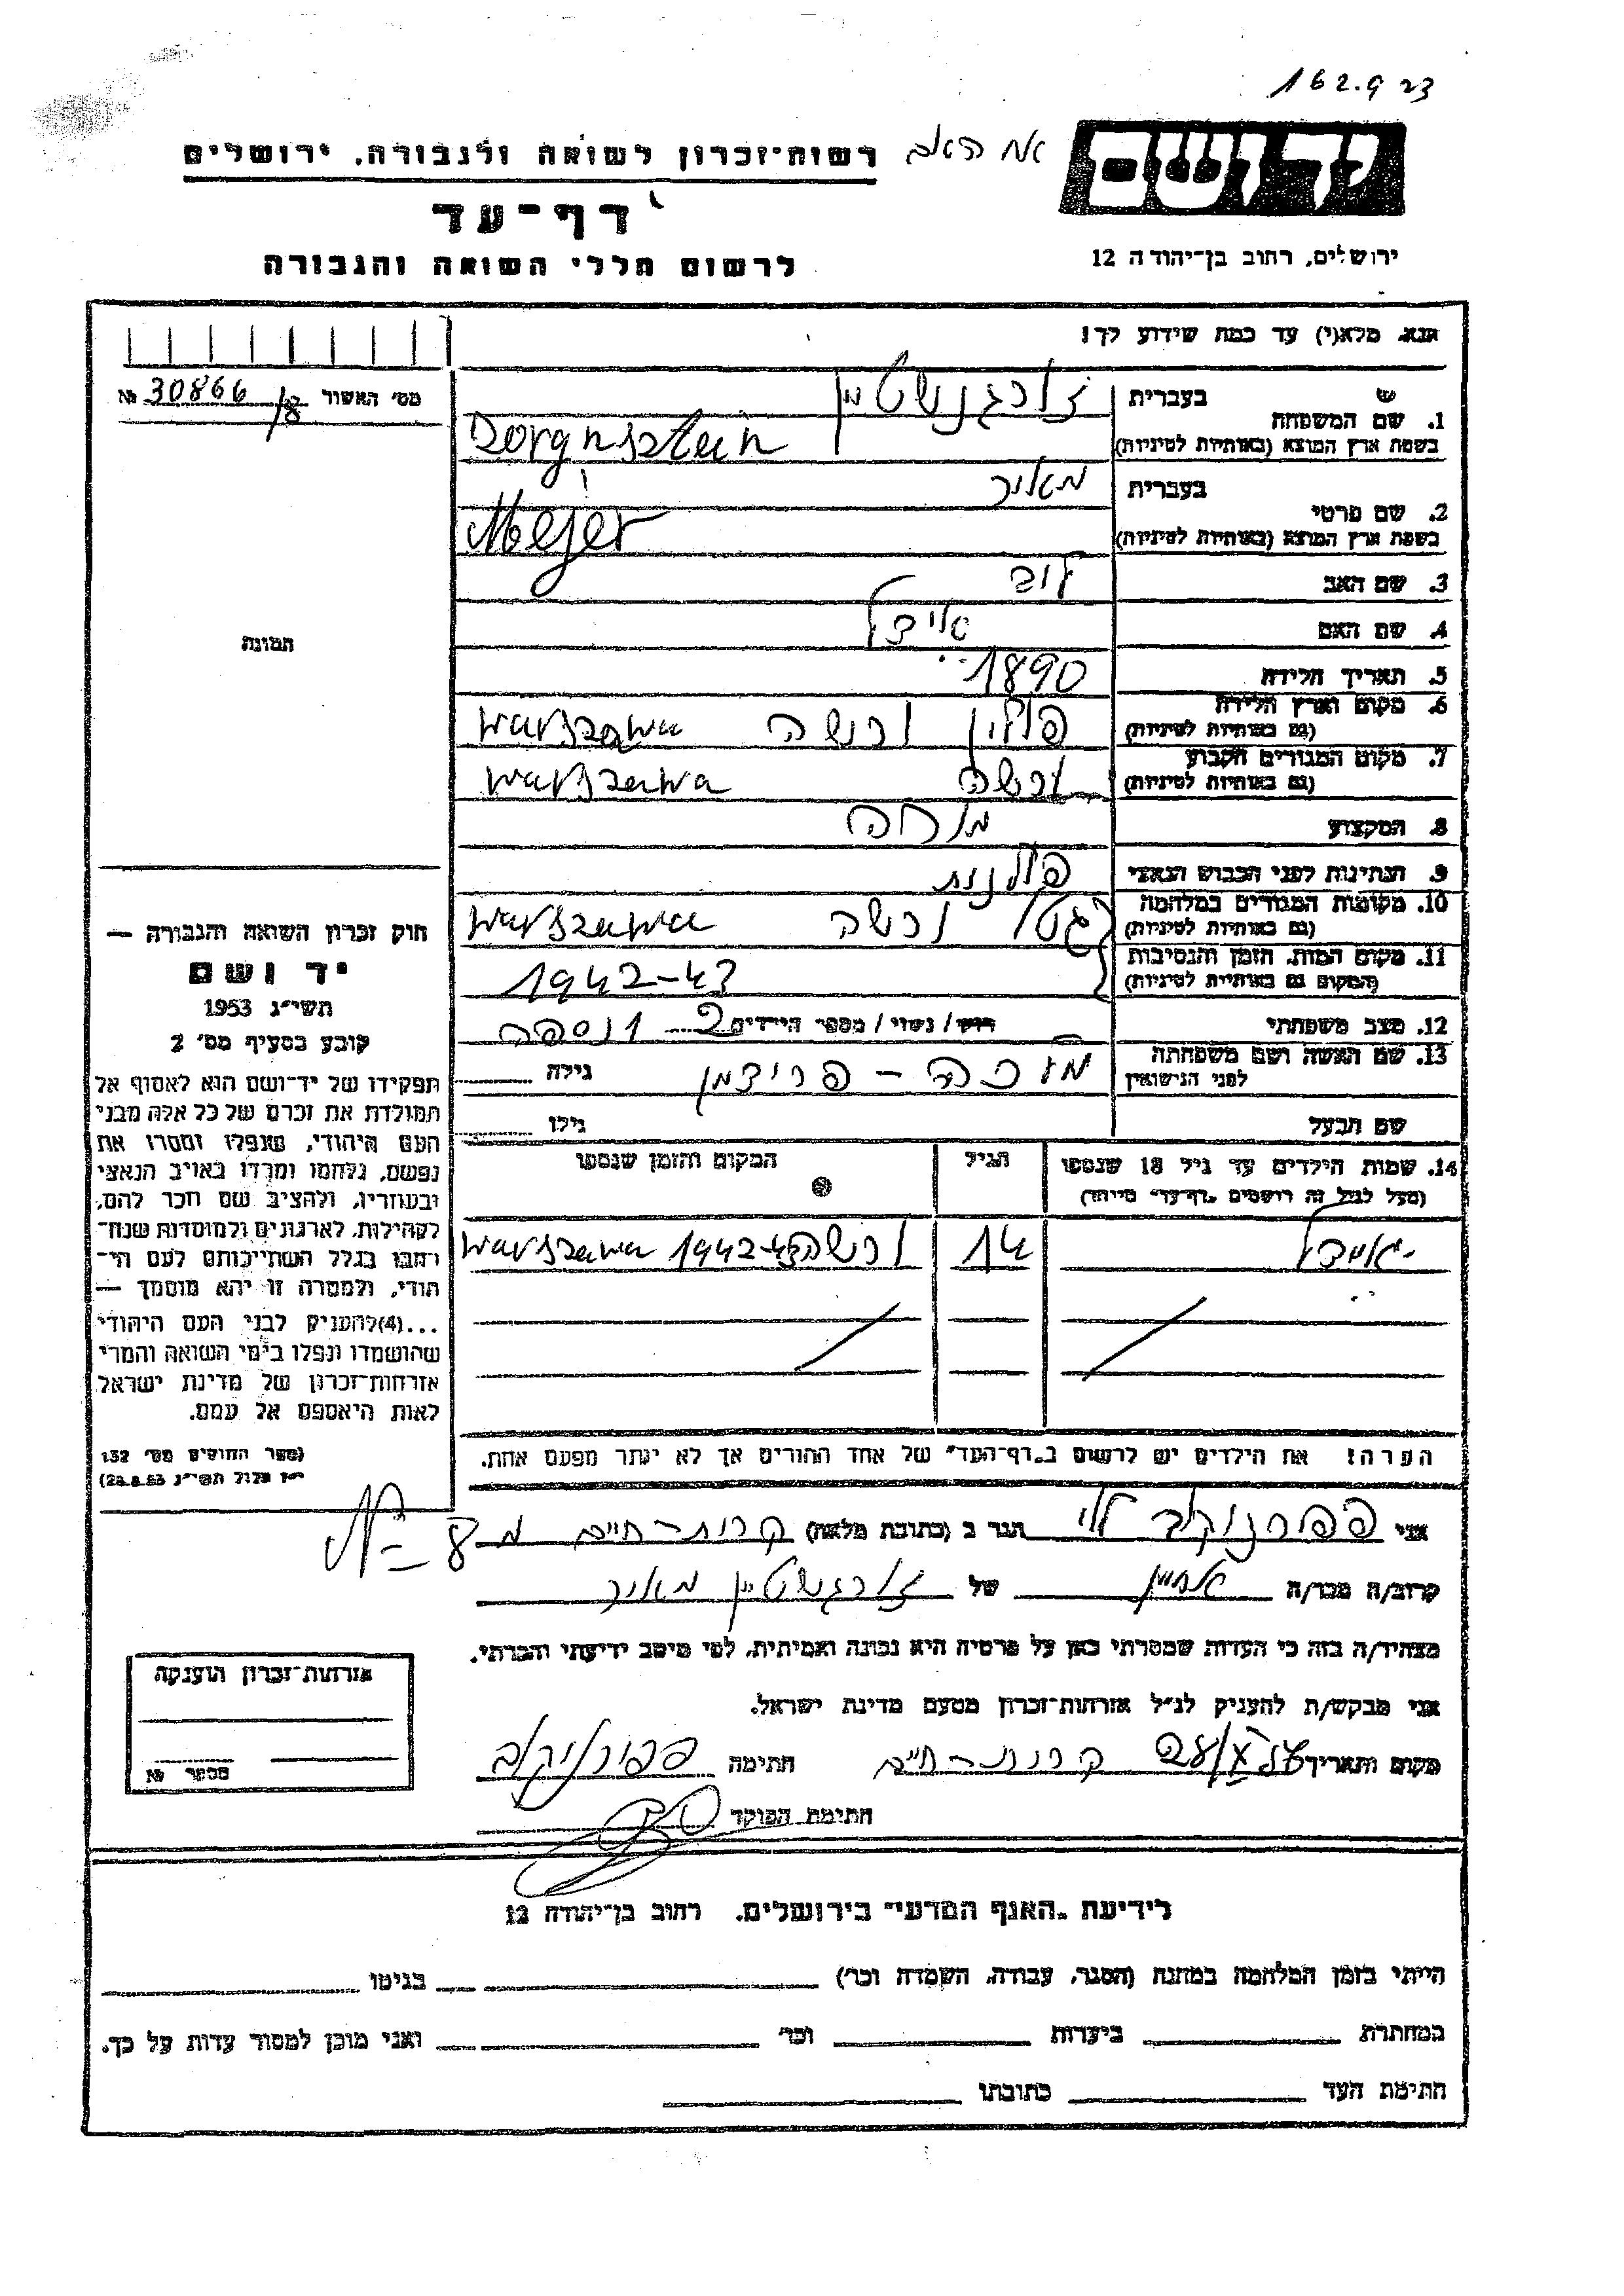 162.9 23
יד ושם
ירושלים, רחוב בן־יהודה 12
רשות־זכרון לשואה ולגבורה, ירושלים
דף־עד
לרשום חללי השואה והגבורה
אנא, מלא(י) עד כמה שידוע לך!
מס' האשור 8/ 30866 №
1. שם המשפחה
בעברית זורגנשטין
בשפת ארץ המוצא (באותיות לטיניות) Zorgnsztein
2. שם פרטי
בעברית מאיר
בשפת ארץ המוצא (באותיות לטיניות) Mejer
3. שם האב לוב
4. שם האם
5. תאריך הלידה 1890
6. מקום וארץ הלידה פולין ורשה Warszawa
(גם באותיות לטיניות)
7. מקום המגורים הקבוע ורשה Warszawa
(גם באותיות לטיניות)
8. המקצוע מורה
9. הנתינות לפני הכבוש הנאצי פולנית
10. מקומות המגורים במלחמה גטו ורשה Warszawa
(גם באותיות לטיניות)
11. מקום המות, הזמן והנסיבות 1942-43
(המקום גם באותיות לטיניות)
12. מצב משפחתי רווק / נשוי / מספר הילדים 2 ונספה
13. שם האשה ושם משפחתה פרידמן גילה
לפני הנישואין
שם הבעל גילו
14. שמות הילדים עד גיל 18 שנספו הגיל המקום והזמן שנספו
(מעל לגיל זה רושמים „דף־עד” מיוחד)
14 ורשה 1942-43 Warszawa
הערה! את הילדים יש לרשום ב„דף־העד” של אחד ההורים אך לא יותר מפעם אחת.
תמונה
חוק זכרון השואה והגבורה —
יד ושם
תשי״ג 1953
קובע בסעיף מס' 2
תפקידו של יד־ושם הוא לאסוף אל
המולדת את זכרם של כל אלה מבני
העם היהודי, שנפלו ומסרו את
נפשם, נלחמו ומרדו באויב הנאצי
ובעוזריו, ולהציב שם וזכר להם,
לקהילות, לארגונים ולמוסדות שנח־
רבו בגלל השתייכותם לעם הי־
הודי, ולמטרה זו יהא מוסמך —
...(4)להעניק לבני העם היהודי
שהושמדו ונפלו בימי השואה והמרי
אזרחות־זכרון של מדינת ישראל
לאות היאספם אל עמם.
(ספר החוקים מס' 132
י״ז אלול תשי״ג 28.8.53)
אני לוי הגר ב (כתובת מלאה) קרית-חיים
קרוב/ה מכר/ה אחיין של זורגנשטיין מאיר
מצהיר/ה בזה כי העדות שמסרתי כאן על פרטיה היא נכונה ואמיתית, לפי מיטב ידיעתי והכרתי.
אני מבקש/ת להעניק לנ״ל אזרחות־זכרון מטעם מדינת ישראל.
מקום ותאריך קרית-חיים חתימה
חתימת הפוקד
אזרחות־זכרון הוענקה
מספר №
לידיעת „האגף המדעי” בירושלים, רחוב בן־יהודה 12
הייתי בזמן המלחמה במחנה (הסגר, עבודה, השמדה וכו') בגיטו
במחתרת ביערות וכו' ואני מוכן למסור עדות על כך.
חתימת העד כתובתו